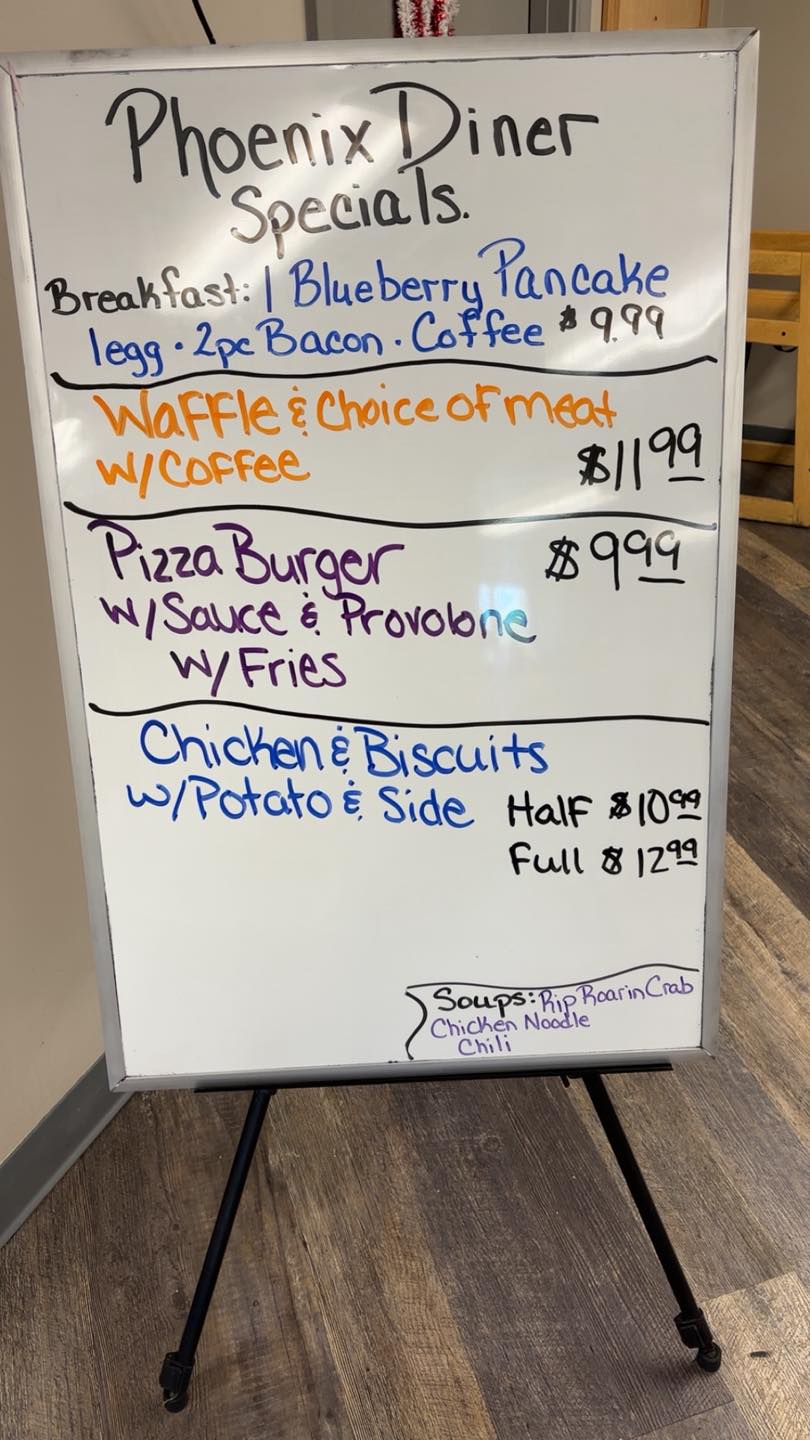 Phoenix Diner
Specials.
Breakfast: 1 Blueberry Pancake
1egg · 2pc Bacon · Coffee $9.99
Waffle & Choice of meat
w/Coffee $11.99
Pizza Burger $9.99
w/Sauce & Provolone
w/Fries
Chicken & Biscuits
w/Potato & Side Half $10.99
Full $12.99
Soups: Rip Roarin Crab
Chicken Noodle
Chili